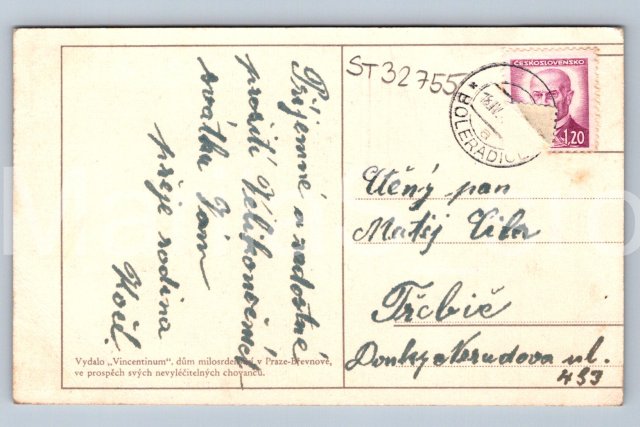 ST 32755
ČESKOSLOVENSKO
1,20
BOLERADICE
Příjemné a radostné
prožití Velikonočních
svátků Vám
přeje rodina
Ctěný pan
Matěj
Třebíč
ul.
453
Vydalo „Vincentinum“, dům milosrdenství v Praze-Břevnově,
ve prospěch svých nevyléčitelných chovanců.